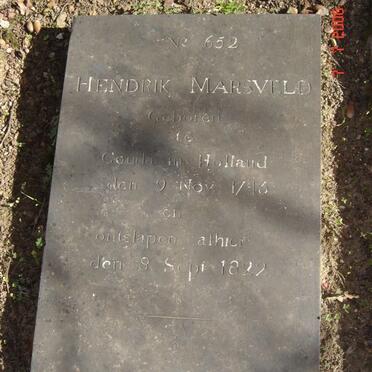 No 652
HENDRIK MARSVELD
Geboren
te
Gouda in Holland
den 9 Nov. 1746
en
ontslapen alhier
den 8 Sept. 1822